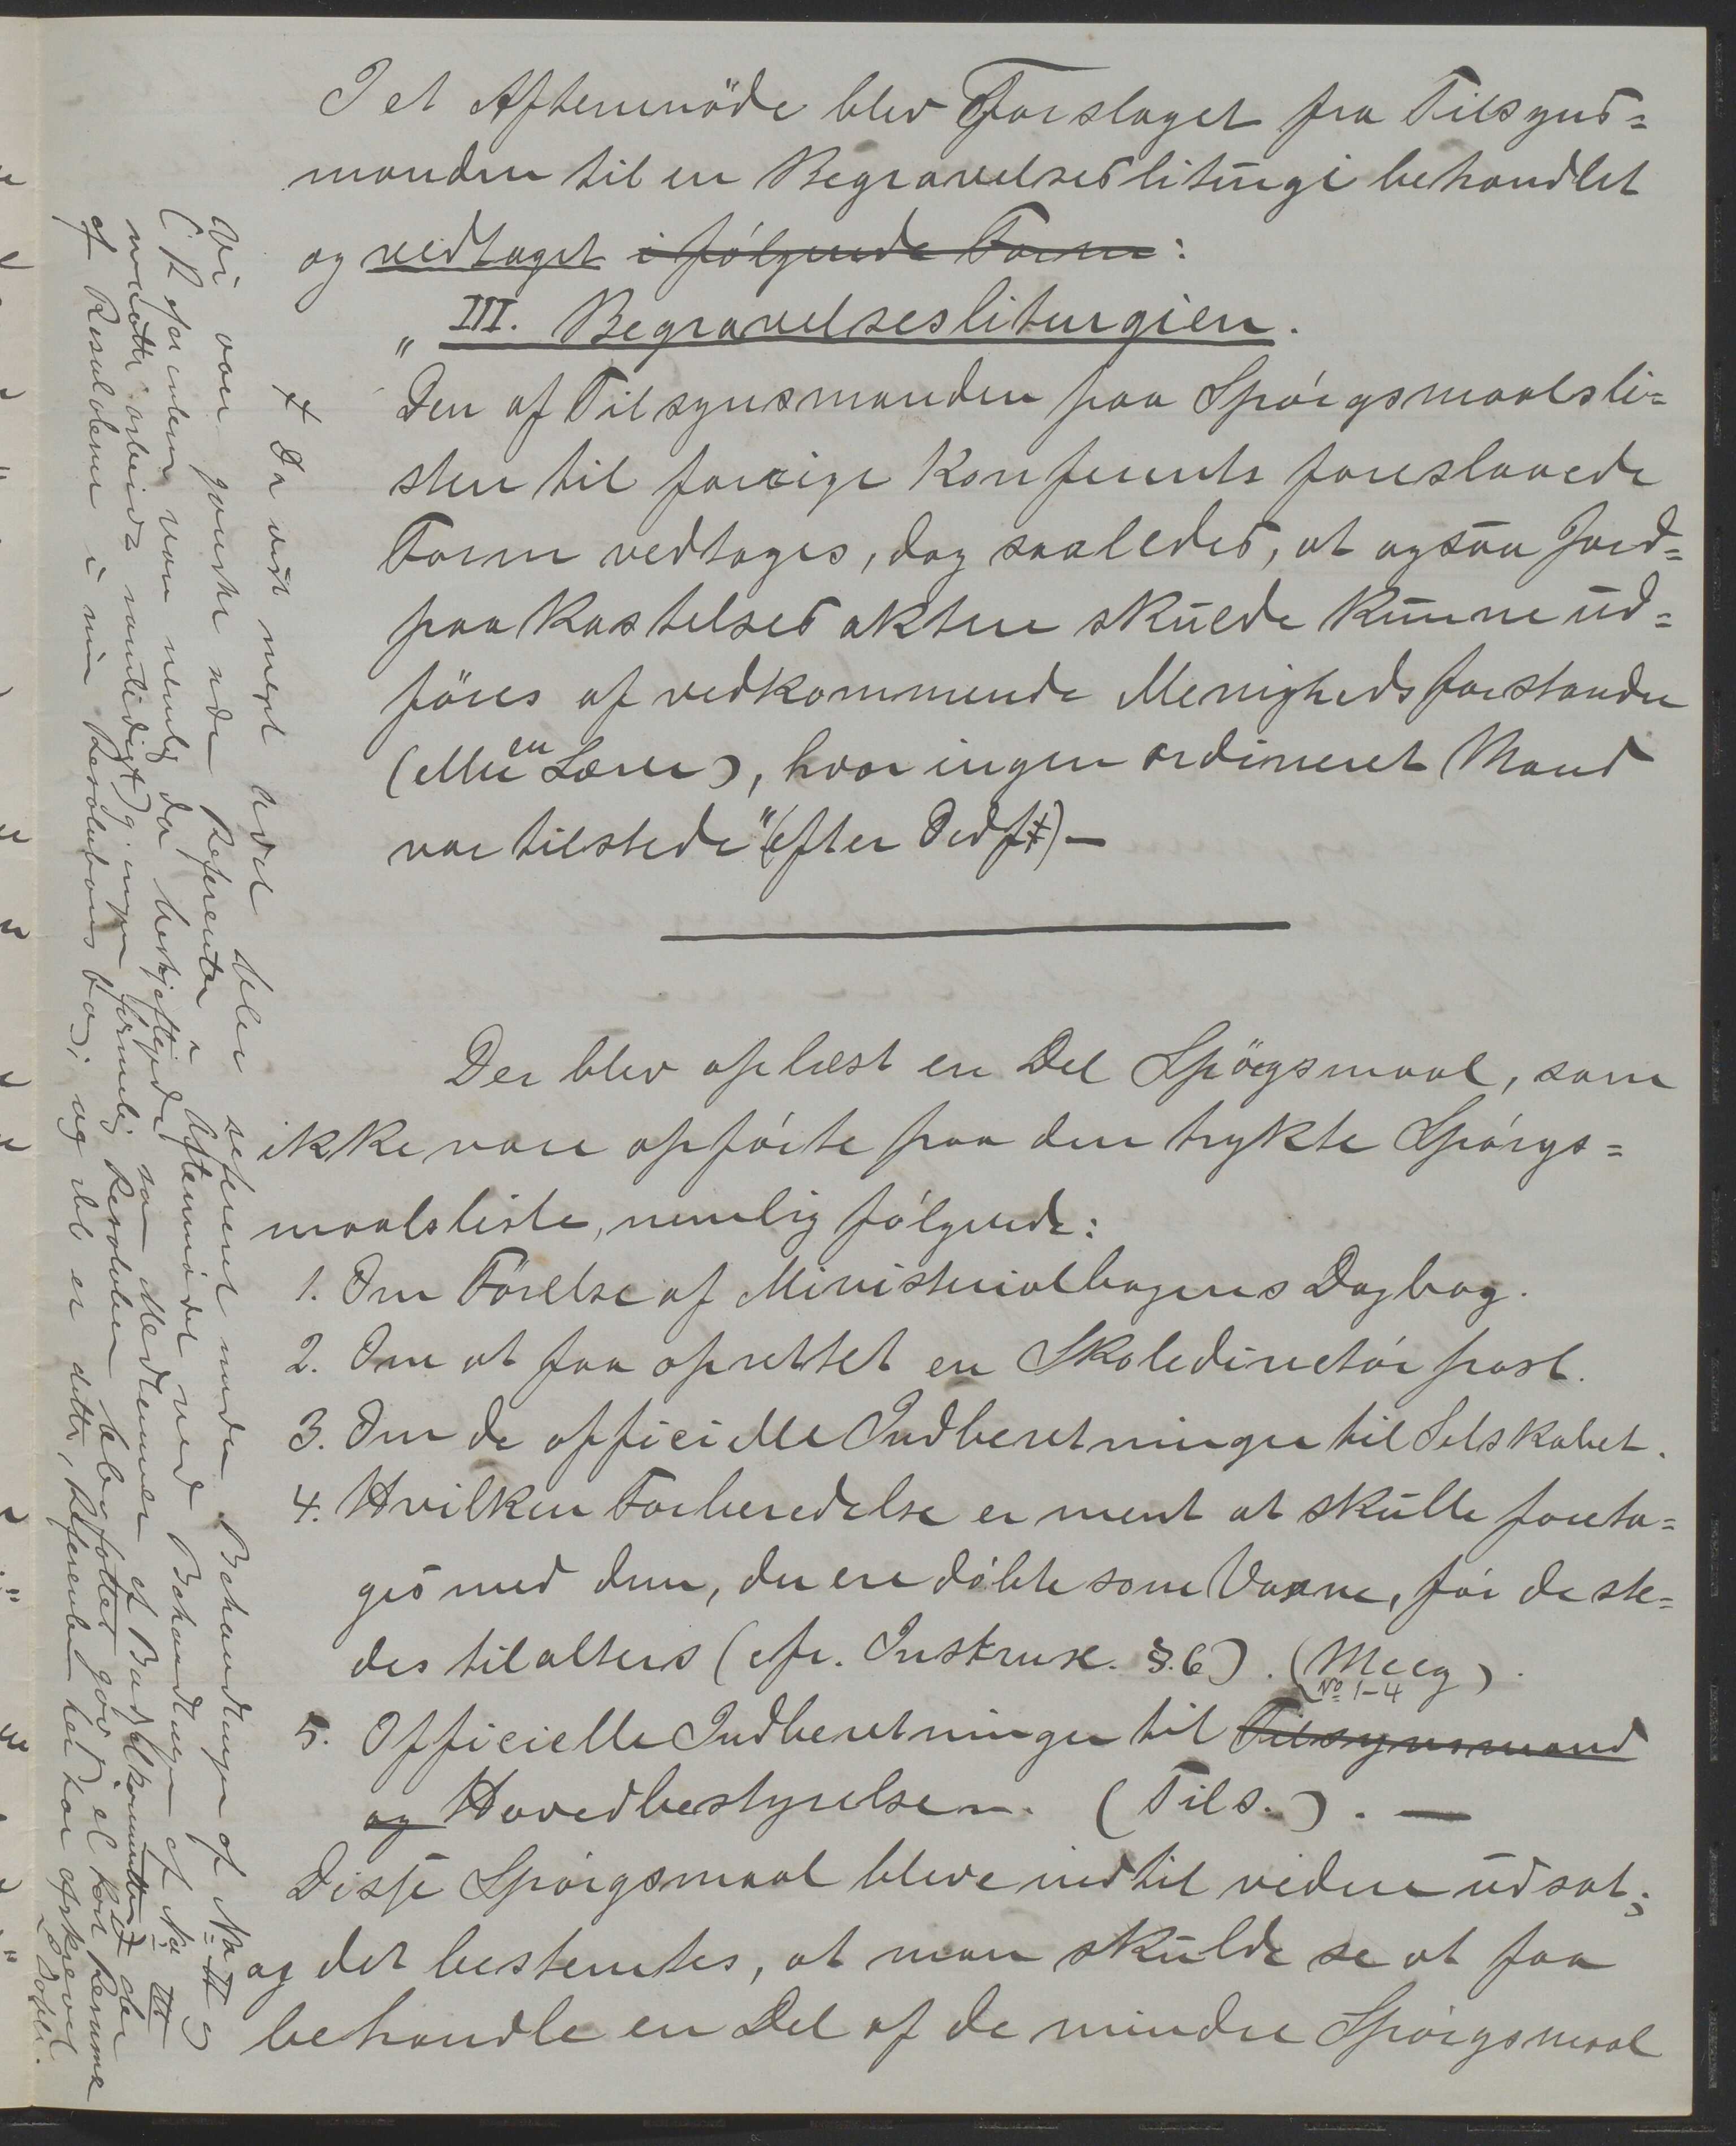 I et Aftenmöde blev Forslaget fra Tilsyns=
manden til en Begravelsesliturgi behandlet
og vedtaget i följende Form:
„ III. Begravelsesliturgien.
Den af Tilsynsmanden paa Spörgsmaalsli=
sten til forrige Konferents foreslaaede
Form vedtages, dog saaledes, at ogsaa Jord=
paakastelsesakten skulde kunne ud=
föres af vedkommende Menighedsforstander
(eller en Lærer), hvor ingen ordineret Mand
var tilstede" (efter Ved
Der blev oplæst en Del Spörgsmaal, som
ikke vare opförte paa den trykte Spörgs=
maalsliste, nemlig fölgende:
1. Om Förelse af Ministerialbogens Dagbog.
2. Om at faa oprettet en Skoledirectörpost.
3. Om de officielle Indberetninger til Selskabet.
4. Hvilken Forberedelse er ment at skulle foreta=
ges med dem, der ere döbte som Voxne, för de ste=
des tilalters (cfr. Instrux. §.6). (Meeg).
No 1-4
5. Officielle Indberetninger til Tilsynsmand
og Hovedbestyrelsen. (Tils.). —
Disse Spörgsmaal bleve indtil videre udsat;
og det bestemtes, at man skulde se at faa
behandle en Del af de mindre Spörgsmaal
Da det blev referent under Behandlingen af No II og
vi var ganske uden Referenter i Aftenmödet ved Behandlingen af No III
(Referenten var nemlig da beskjeftiget som Medlemmer af Budgetkomitteen, der
maatte arbeide samtidigt) og ingen formelig Resolution blev fattet
af Resultatene i min Resolutionsbog; og det er dette, Referenten her har afskrevet